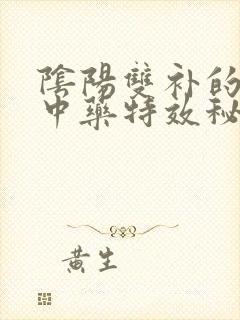 陰陽雙补的
中藥特效秘
黄生